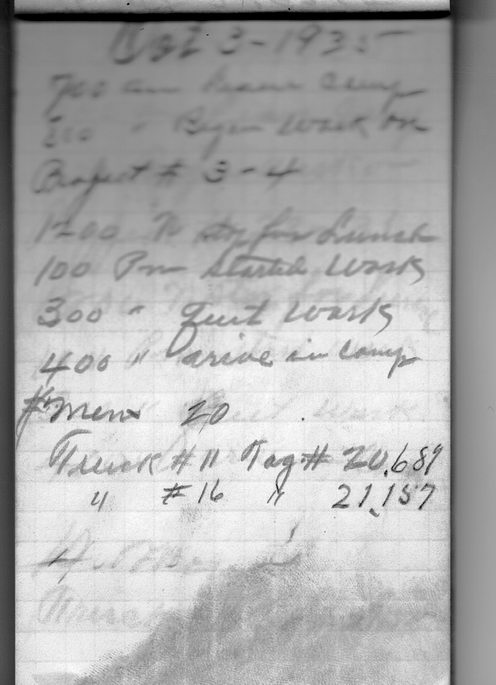 Oct 3-1935
700 am leave camp
800 " Begin Work on
Project # 3-4
1200 N stop for Lunch
100 Pm Started Work
300 " Quit Work
400 " arive in camp
# Men 20
Truck # 11 Tag # 20,689
" # 16 " 21,157